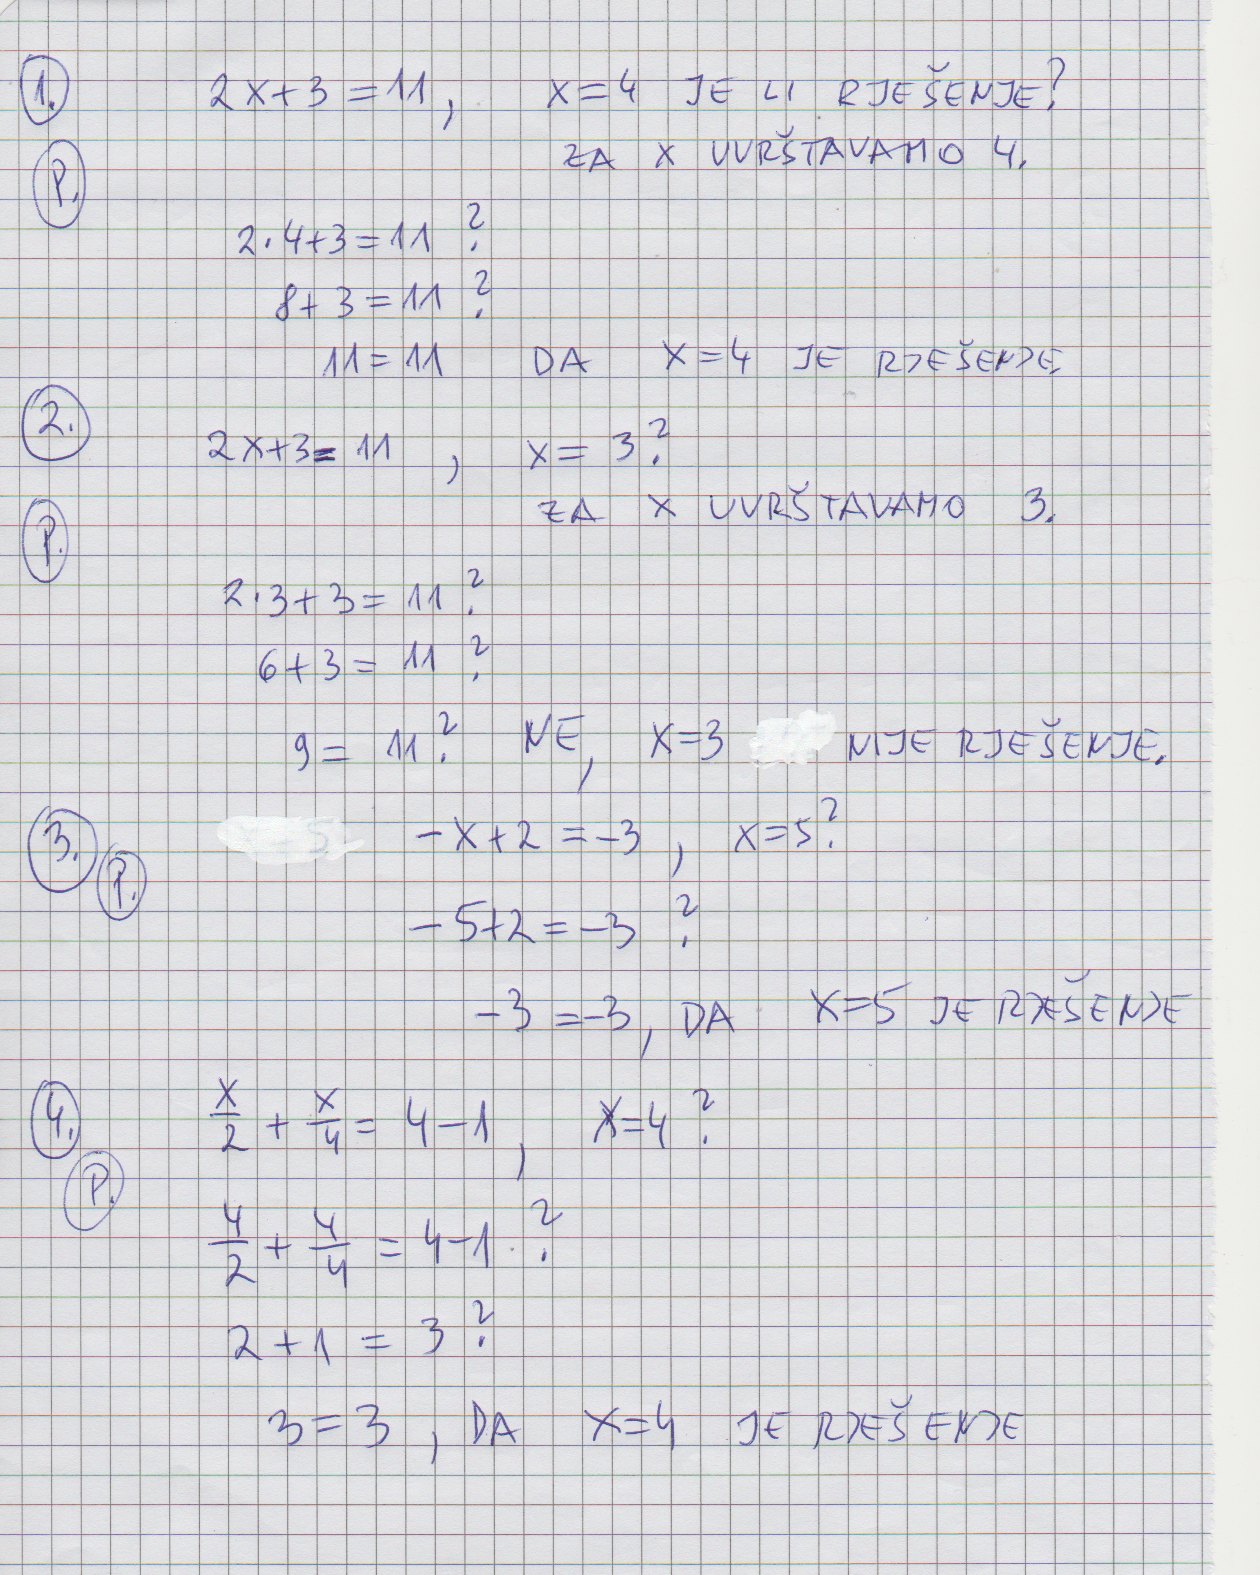 1. 2x+3=11, x=4 JE LI RJEŠENJE?
P. ZA X UVRŠTAVAMO 4.
2·4+3=11 ?
8+3=11 ?
11=11 DA X=4 JE RJEŠENJE.
2. 2x+3=11, x=3?
P. ZA X UVRŠTAVAMO 3.
2·3+3=11 ?
6+3=11 ?
9=11? NE, X=3 NIJE RJEŠENJE.
3. P. -x+2=-3, x=5?
-5+2=-3 ?
-3=-3, DA X=5 JE RJEŠENJE
4. x/2 + x/4 = 4-1, X=4 ?
P.
4/2 + 4/4 = 4-1 ?
2+1=3 ?
3=3, DA X=4 JE RJEŠENJE